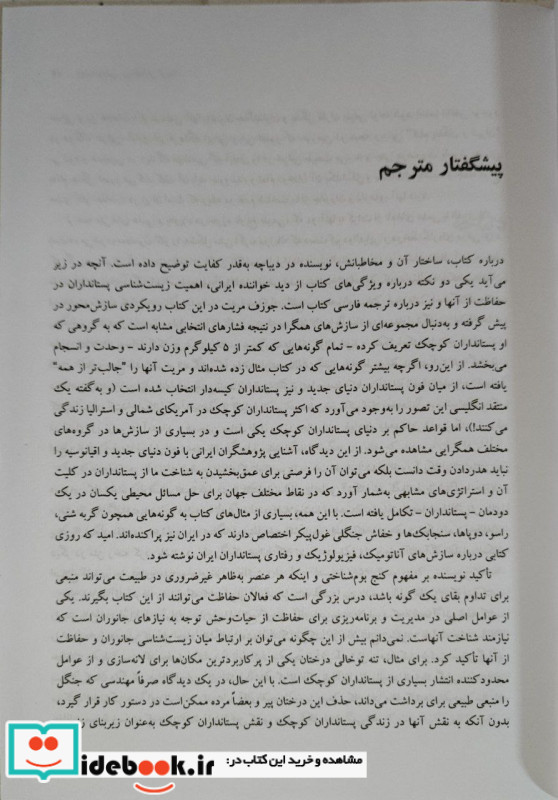 پیشگفتار مترجم
درباره کتاب، ساختار آن و مخاطبانش، نویسنده در دیباچه به‌قدر کفایت توضیح داده است. آنچه در زیر
می‌آید یکی دو نکته درباره ویژگی‌های کتاب از دید خواننده ایرانی، اهمیت زیست‌شناسی پستانداران در
حفاظت از آنها و نیز درباره ترجمه فارسی کتاب است. جوزف مریت در این کتاب رویکردی سازش‌محور در
پیش گرفته و به‌دنبال مجموعه‌ای از سازش‌های همگرا در نتیجه فشارهای انتخابی مشابه است که به گروهی که
او پستانداران کوچک تعریف کرده - تمام گونه‌هایی که کمتر از ۵ کیلوگرم وزن دارند - وحدت و انسجام
می‌بخشد. از این‌رو، اگرچه بیشتر گونه‌هایی که در کتاب مثال زده شده‌اند و مریت آنها را "جالب‌تر از همه"
یافته است، از میان فون پستانداران دنیای جدید و نیز پستانداران کیسه‌دار انتخاب شده است (و به‌گفته یک
منتقد انگلیسی این تصور را به‌وجود می‌آورد که اکثر پستانداران کوچک در آمریکای شمالی و استرالیا زندگی
می‌کنند!)، اما قواعد حاکم بر دنیای پستانداران کوچک یکی است و در بسیاری از سازش‌ها در گروه‌های
مختلف همگرایی مشاهده می‌شود. از این دیدگاه، آشنایی پژوهشگران ایرانی با فون دنیای جدید و اقیانوسیه را
نباید هدردادن وقت دانست بلکه می‌توان آن را فرصتی برای عمق‌بخشیدن به شناخت ما از پستانداران در کلیت
آن و استراتژی‌های مشابهی به‌شمار آورد که در نقاط مختلف جهان برای حل مسائل محیطی یکسان در یک
دودمان - پستانداران - تکامل یافته است. با این همه، بسیاری از مثال‌های کتاب به گونه‌هایی همچون گربه شنی،
راسو، دوپاها، سنجابک‌ها و خفاش جنگلی غول‌پیکر اختصاص دارند که در ایران نیز پراکنده‌اند. امید که روزی
کتابی درباره سازش‌های آناتومیک، فیزیولوژیک و رفتاری پستانداران ایران نوشته شود.
تأکید نویسنده بر مفهوم کنج بوم‌شناختی و اینکه هر عنصر به‌ظاهر غیرضروری در طبیعت می‌تواند منبعی
برای تداوم بقای یک گونه باشد، درس بزرگی است که فعالان حفاظت می‌توانند از این کتاب بگیرند. یکی
از عوامل اصلی در مدیریت و برنامه‌ریزی برای حفاظت از حیات‌وحش توجه به نیازهای جانوران است که
نیازمند شناخت آنهاست. نمی‌دانم بیش از این چگونه می‌توان بر ارتباط میان زیست‌شناسی جانوران و حفاظت
از آنها تأکید کرد. برای مثال، تنه توخالی درختان یکی از پرکاربردترین مکان‌ها برای لانه‌سازی و از عوامل
محدودکننده انتشار بسیاری از پستانداران کوچک است. با این حال، در یک دیدگاه صرفاً مهندسی که جنگل
را منبعی طبیعی برای برداشت می‌داند، حذف این درختان پیر و بعضاً مرده ممکن‌است در دستور کار قرار گیرد،
بدون آنکه به نقش آنها در زندگی پستانداران کوچک و نقش پستانداران کوچک به‌عنوان زیربنای
مشاهده و خرید این کتاب در:
idebook.ir